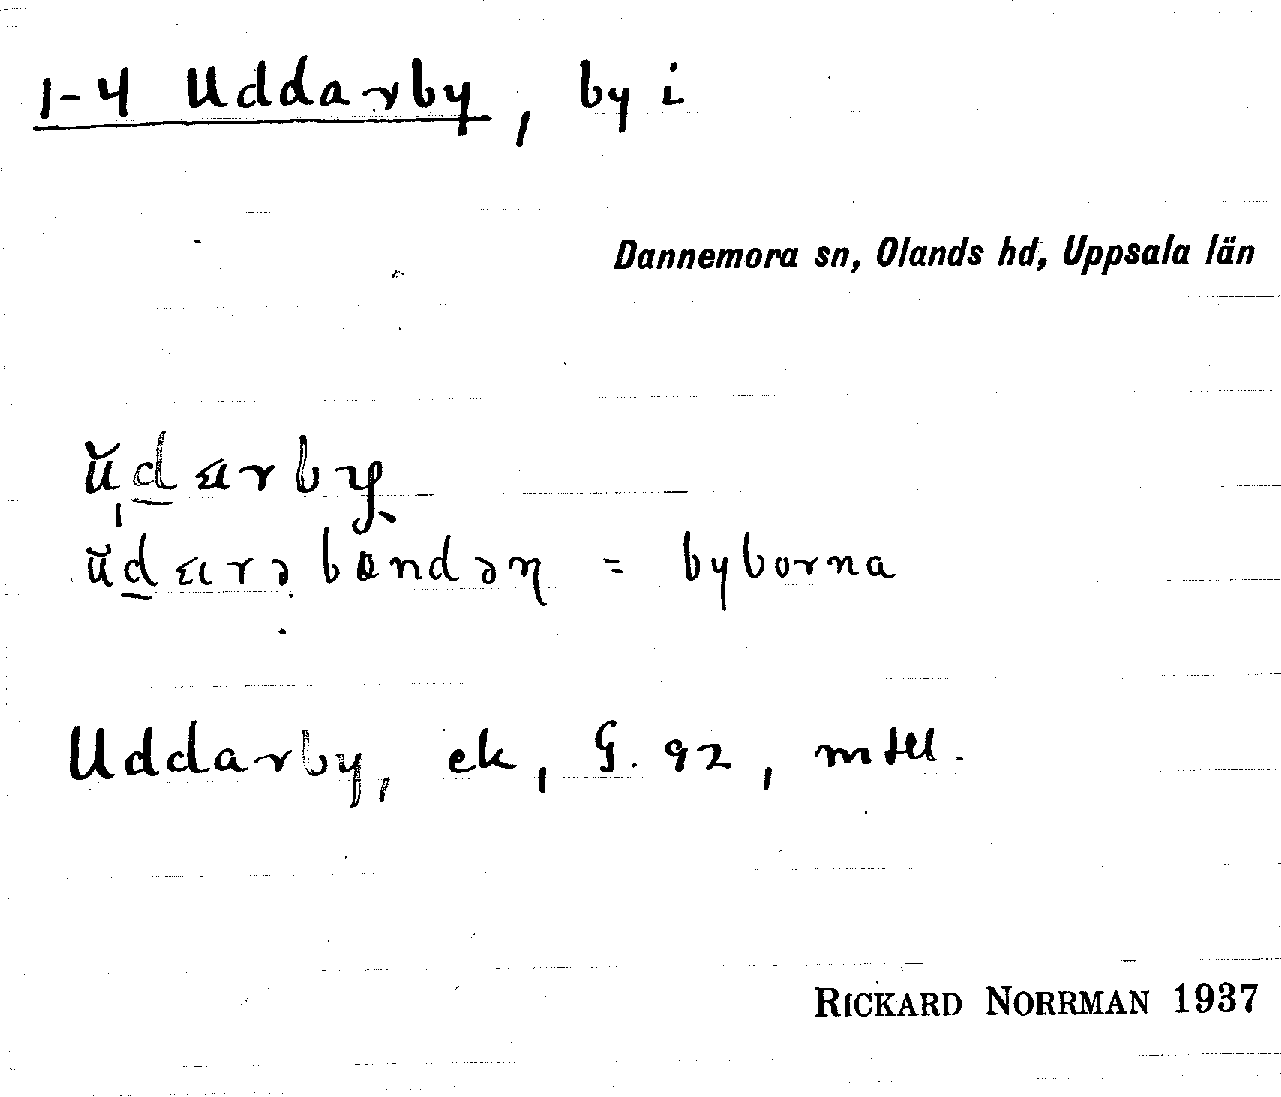 1-4 Uddarby, by i
Dannemora sn, Olands hd, Uppsala län
ŭd̲arby̨
ŭd̲arə bøndəɲ = byborna
Uddarby, ek, G. 92, mtll.
RICKARD NORRMAN 1937